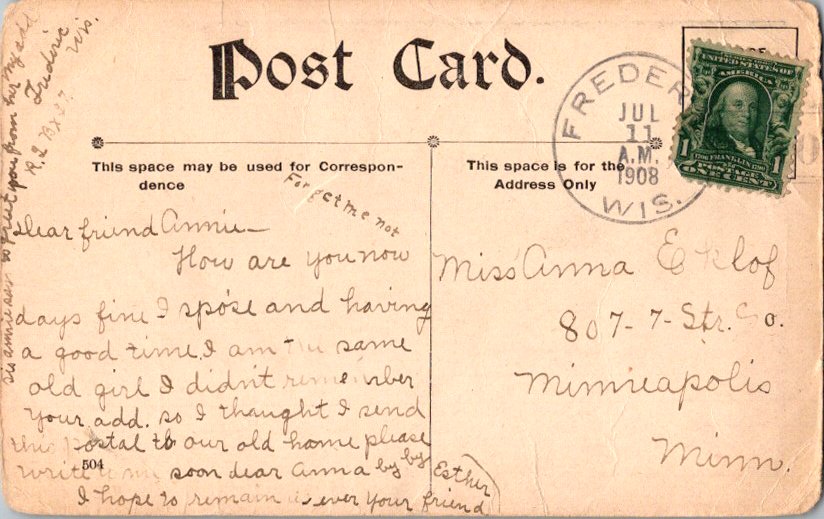 Post Card.
This space may be used for Correspon-
dence
This space is for the
Address Only
FREDERI
JUL
11
A.M.
1908
WIS.
UNITED STATES OF
AMERICA
1 FRANKLIN 1
POSTAGE
ONE CENT
Forget me not
Dear friend Annie—
How are you now
days fine I spose and having
a good time. I am the same
old girl I didn't remember
your add. so I thaught I send
this postal to our old home please
write to me soon dear Anna by by Esther
I hope to remain as ever your friend
504
Miss Anna Eklof
807-7-Str. So.
Minneapolis
Minn.
from her my add
Frederic
Wis.
R.2 BX 37